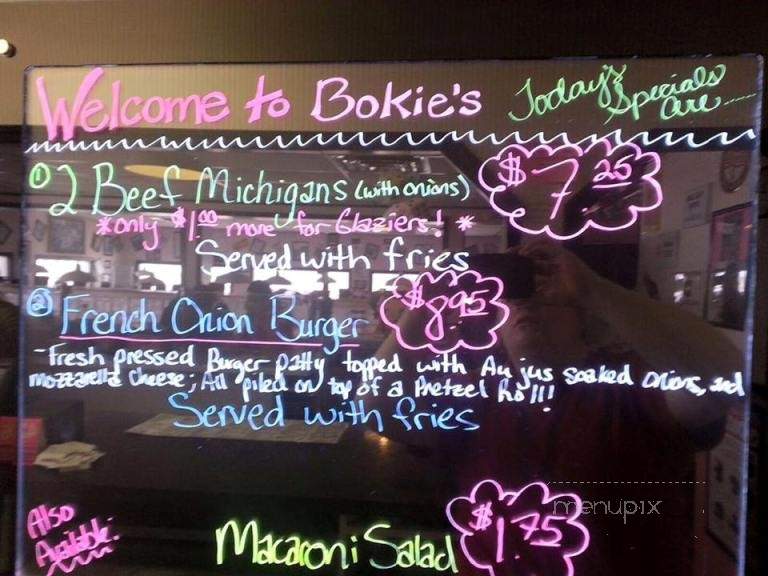 Welcome to Bokie's
Today's
Specials
are.....
① 2 Beef Michigans (with onions)
$7.25
*only $1.00 more for Glaziers! *
Served with fries
② French Onion Burger
$8.95
- Fresh pressed Burger patty topped with Au jus soaked onions, and
mozzarella cheese; All piled on top of a Pretzel Roll!!
Served with fries
Also
Available:
Macaroni Salad
$1.75
menupix